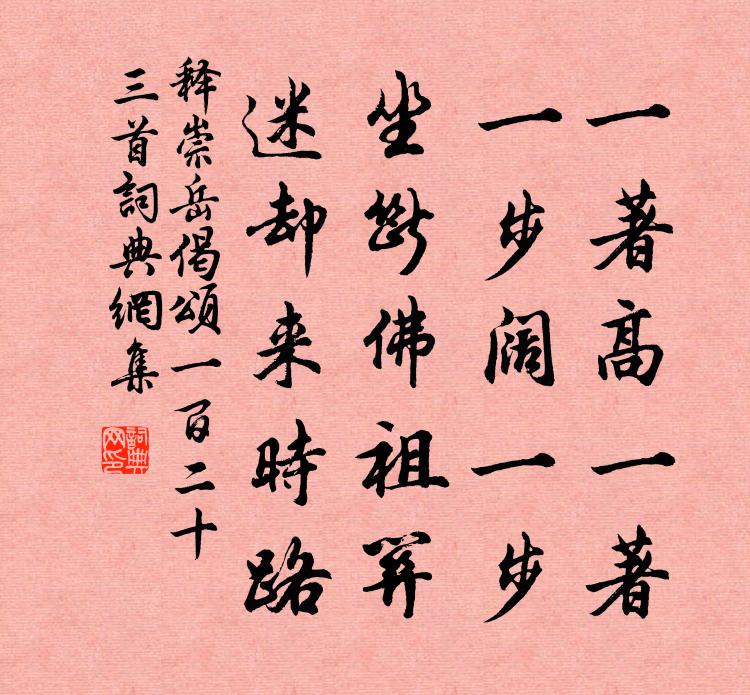 一著高一著
一步阔一步
坐断佛祖关
迷却来時路
释崇岳偈頌一百二十
三首詞典網集
詞典网印